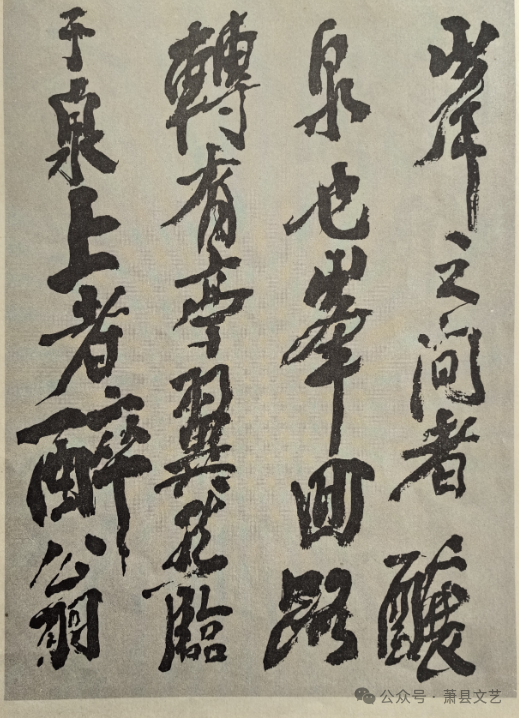 岸之間者釀
泉也峯回路
轉有亭翼然臨
于泉上者醉翁
公众号·萧县文艺